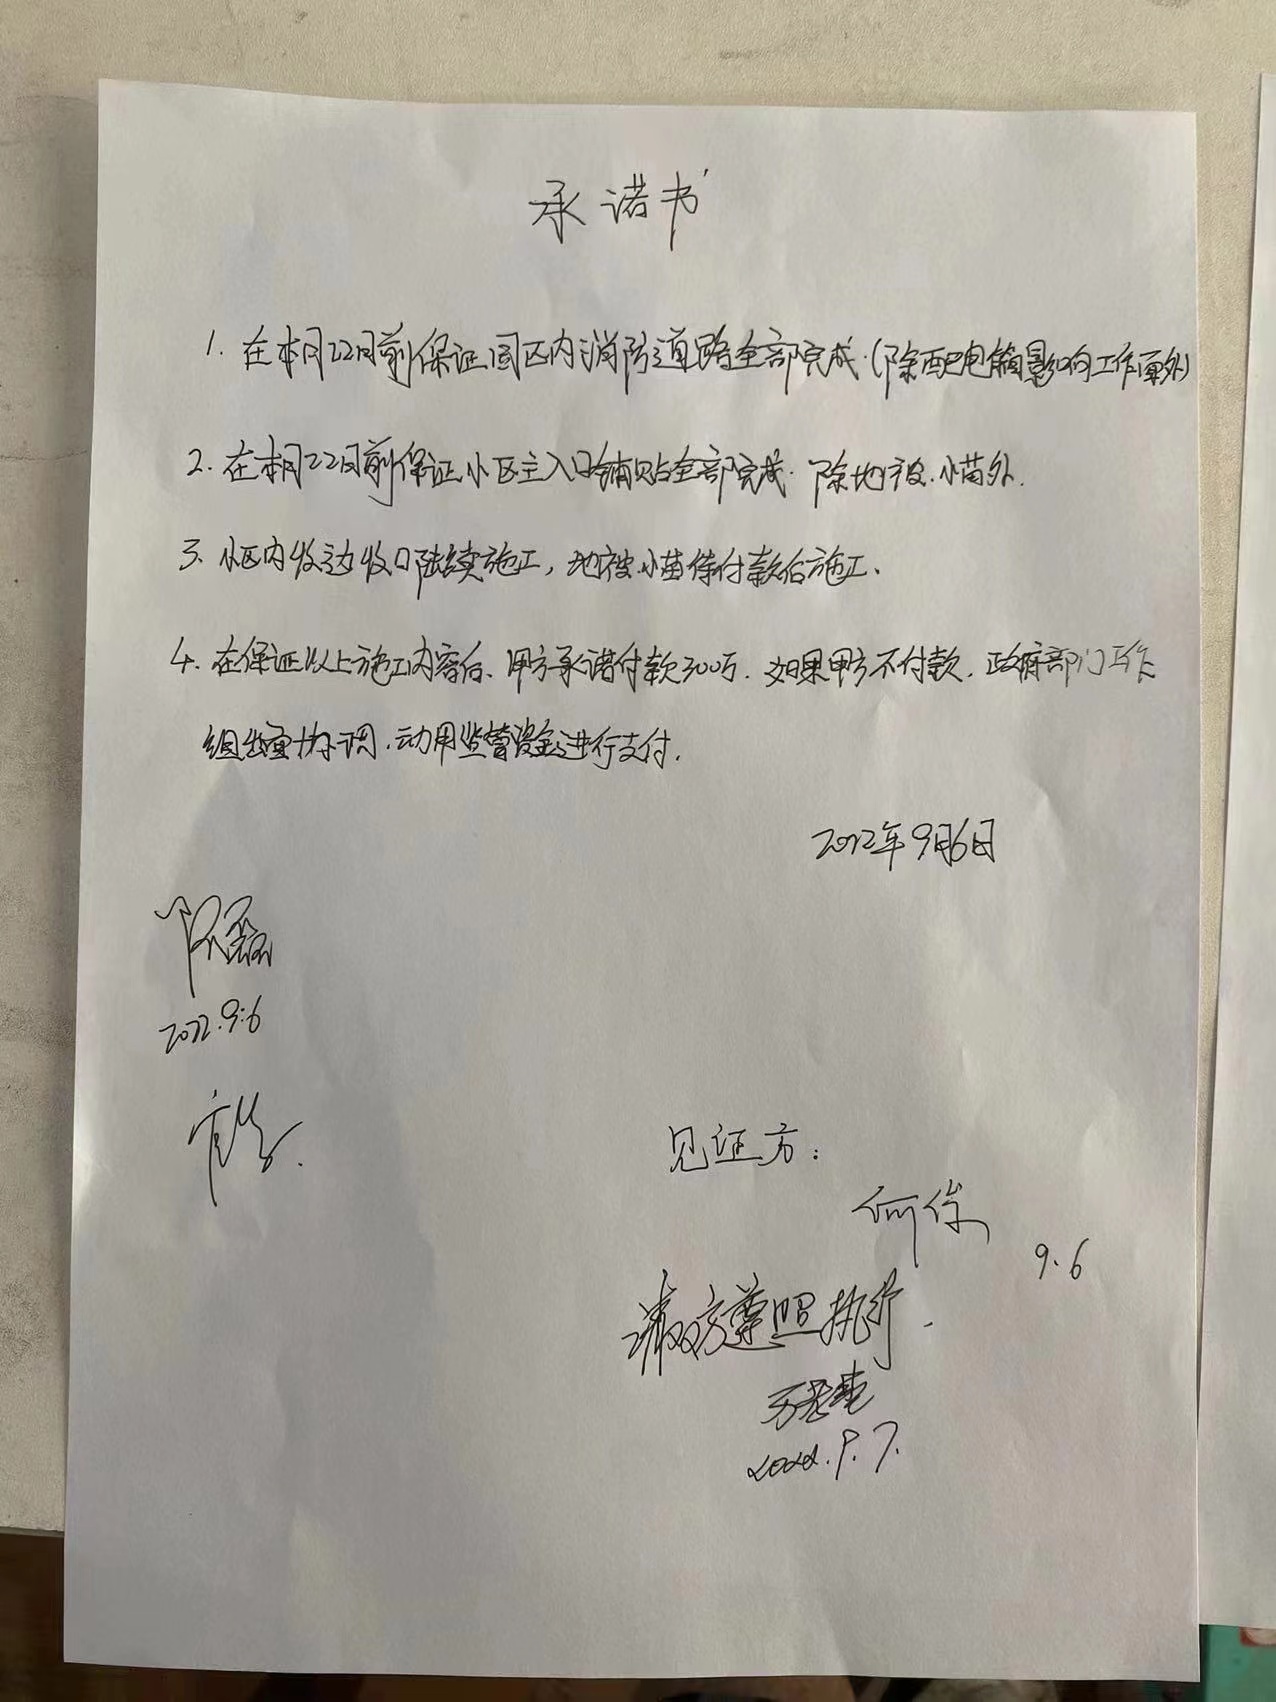 承诺书
1. 在本月22日前保证园区内消防道路全部完成.(除配电箱影响工作面外)
2. 在本月22日前保证小区主入口铺贴全部完成. 除地被.小苗外.
3. 小区内收边收口陆续施工,地被小苗待付款后施工、
4. 在保证以上施工内容后、甲方承诺付款300万. 如果甲方不付款. 政府部门工作
组出面协调.动用监管资金进行支付.
2022年9月6日
2022.9.6
见证方:
何俊
9.6
请双方遵照执行.
2022.9.7.